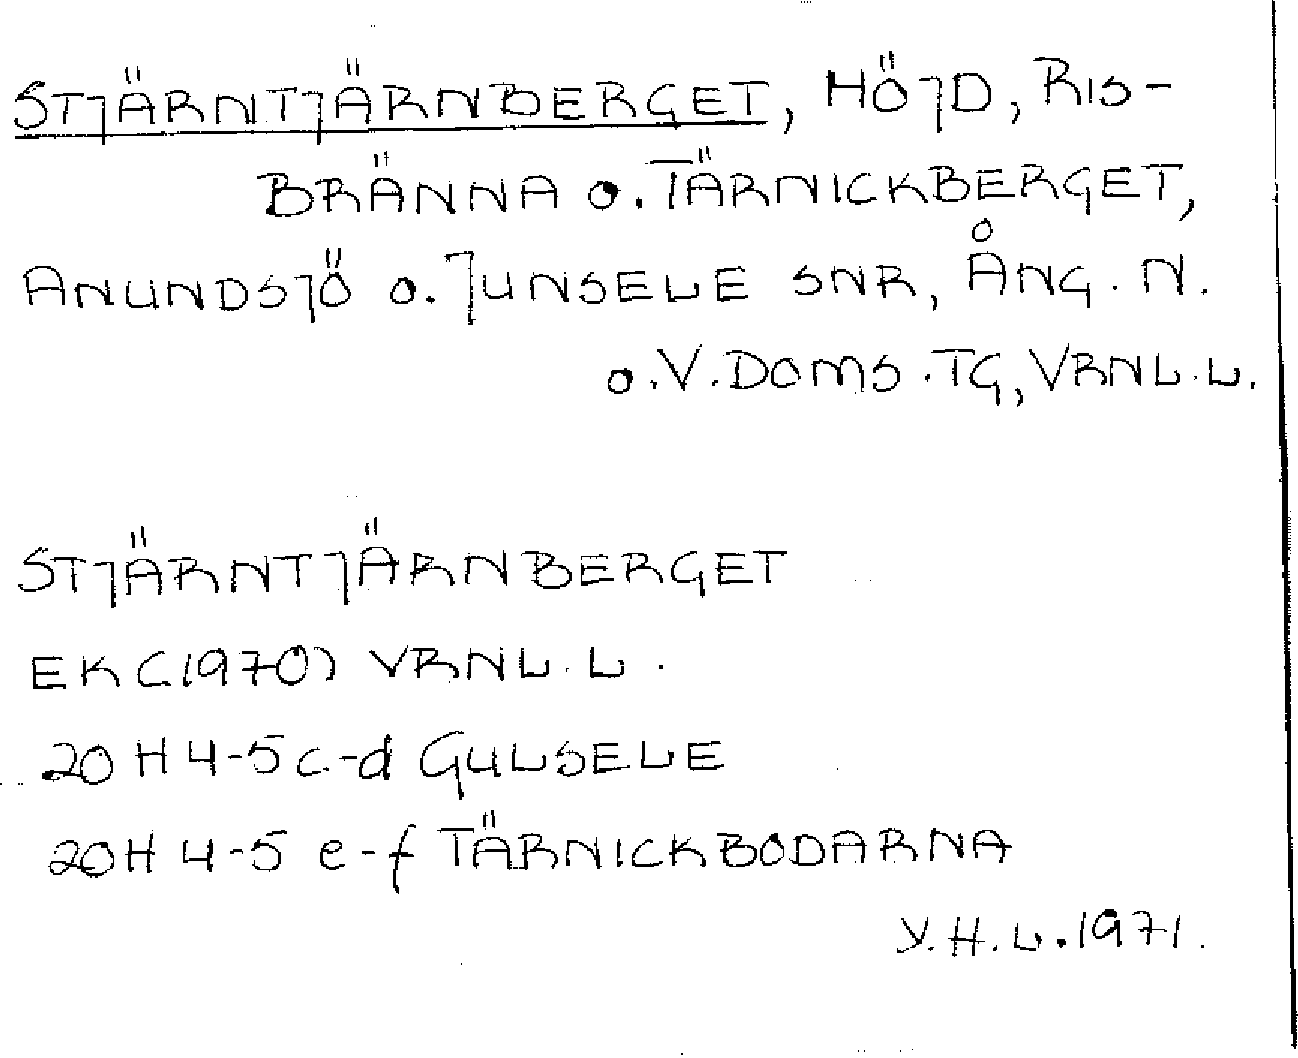 STJÄRNTJÄRNBERGET, HÖJD, RIS-
BRÄNNA o. TÄRNICKBERGET,
ANUNDSJÖ o. JUNSELE SNR, ÅNG. N.
o. V. DOMS. TG, VRNL. L.
STJÄRNTJÄRNBERGET
EK (1970) VRNL. L.
20 H 4-5 c-d GULSELE
20H 4-5 e-f TÄRNICKBODARNA
Y. H. L. 1971.